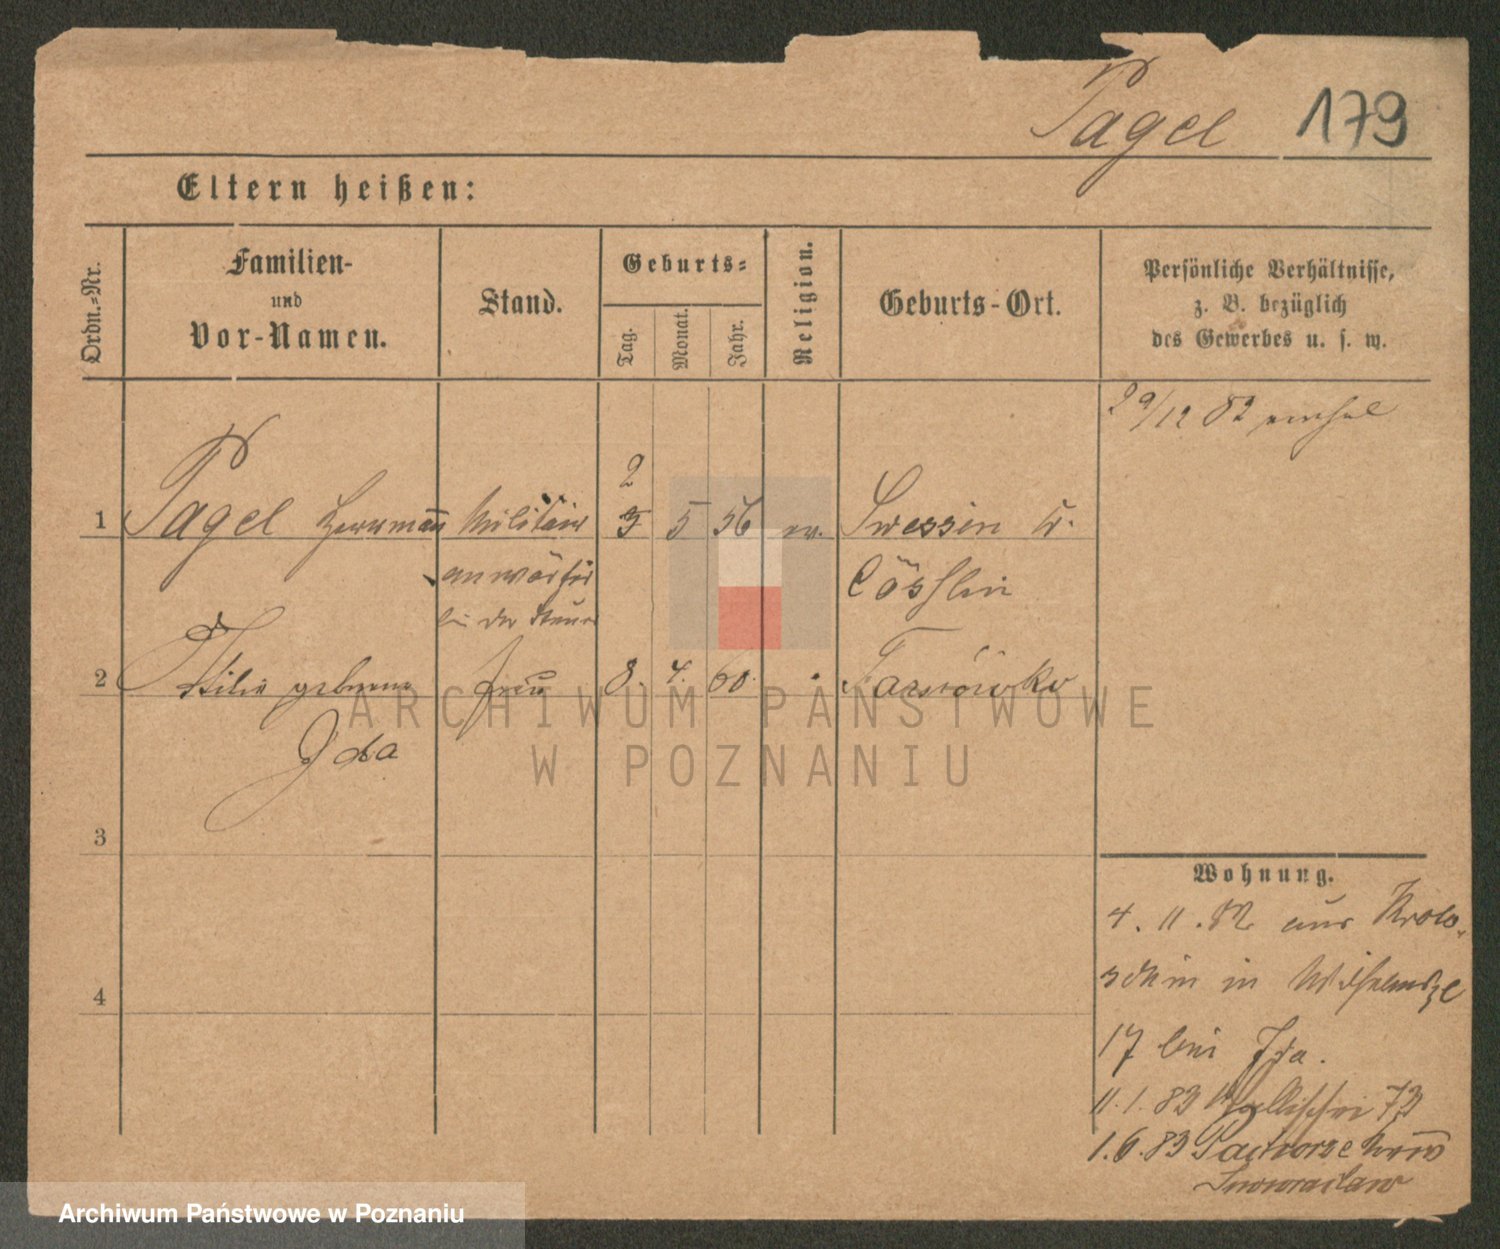 Pagel 179
Eltern heißen:
Ordn.-Nr.
Familien-
und
Vor-Namen.
Stand.
Geburts-
Tag.
Monat.
Jahr.
Religion.
Geburts-Ort.
Persönliche Verhältnisse,
z. B. bezüglich
des Gewerbes u. s. w.
29/12 82
2
1 Pagel Herrmann Militair 3 5 56 ev. Swessin Kr.
anwärter Cöslin
bei der Steuer
2 Ottilie geborene Frau 8. 4. 60.
Ida
3
4
Wohnung.
4. 11. 82 aus Kroto-
schin in Wilhelmspl
17 bei Ida.
11. 1. 83 Wallischei 73
1. 6. 83 Kreis
Inowraclaw
ARCHIWUM PAŃSTWOWE
W POZNANIU
Archiwum Państwowe w Poznaniu